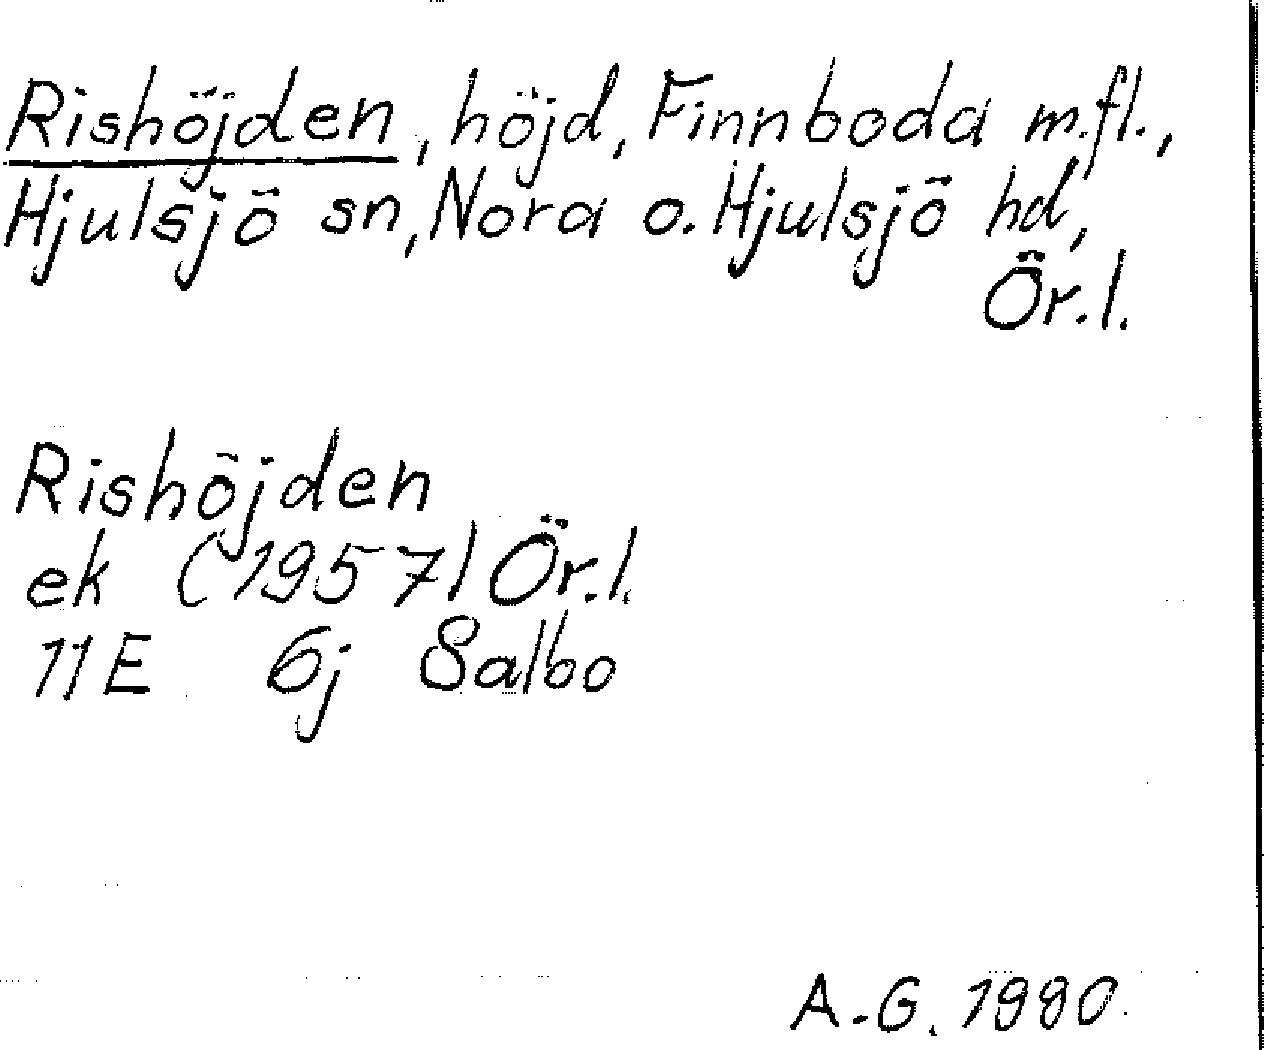 Rishöjden, höjd, Finnboda m.fl.,
Hjulsjö sn, Nora o. Hjulsjö hd,
Ör.l.
Rishöjden
ek (1957) Ör.l.
11E 6j Salbo
A.-G. 1990.